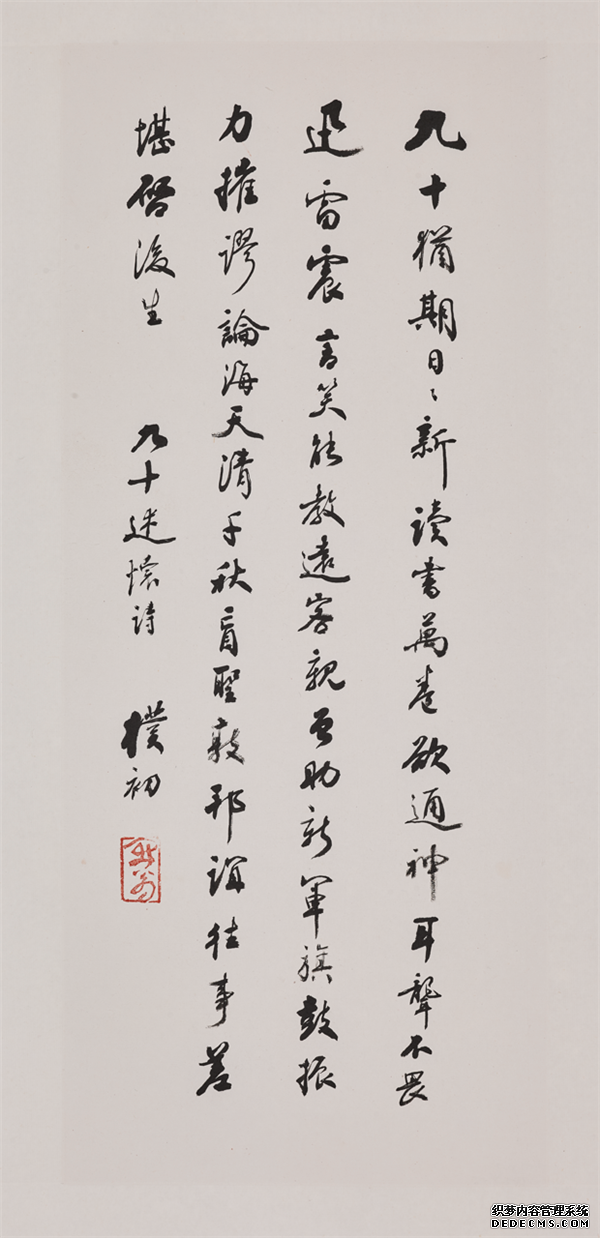 九十猶期日〻新讀書萬卷欲通神耳聾不畏
迅雷震言笑能教遠客親曾助新軍旗鼓振
力摧謬論海天清千秋盲聖敦邦誼往事差
堪啓後生
九十述懷詩
樸初
织梦内容管理系统
DEDECMS.COM